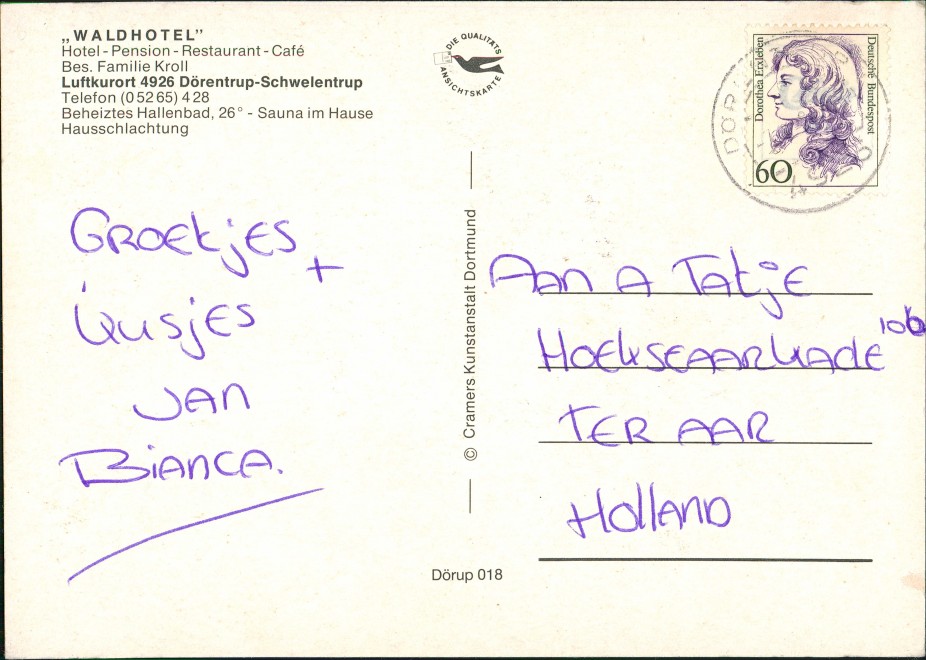 „WALDHOTEL"
Hotel - Pension - Restaurant - Café
Bes. Familie Kroll
Luftkurort 4926 Dörentrup-Schwelentrup
Telefon (0 52 65) 4 28
Beheiztes Hallenbad, 26° - Sauna im Hause
Hausschlachtung
DIE QUALITÄTS
ANSICHTSKARTE
Dorothea Erxleben
Deutsche Bundespost
60
Groetjes
+
Kusjes
Jan
Bianca.
© Cramers Kunstanstalt Dortmund
Aan A Tatje
Hoekseaarkade 10b
Ter Aar
Holland
Dörup 018